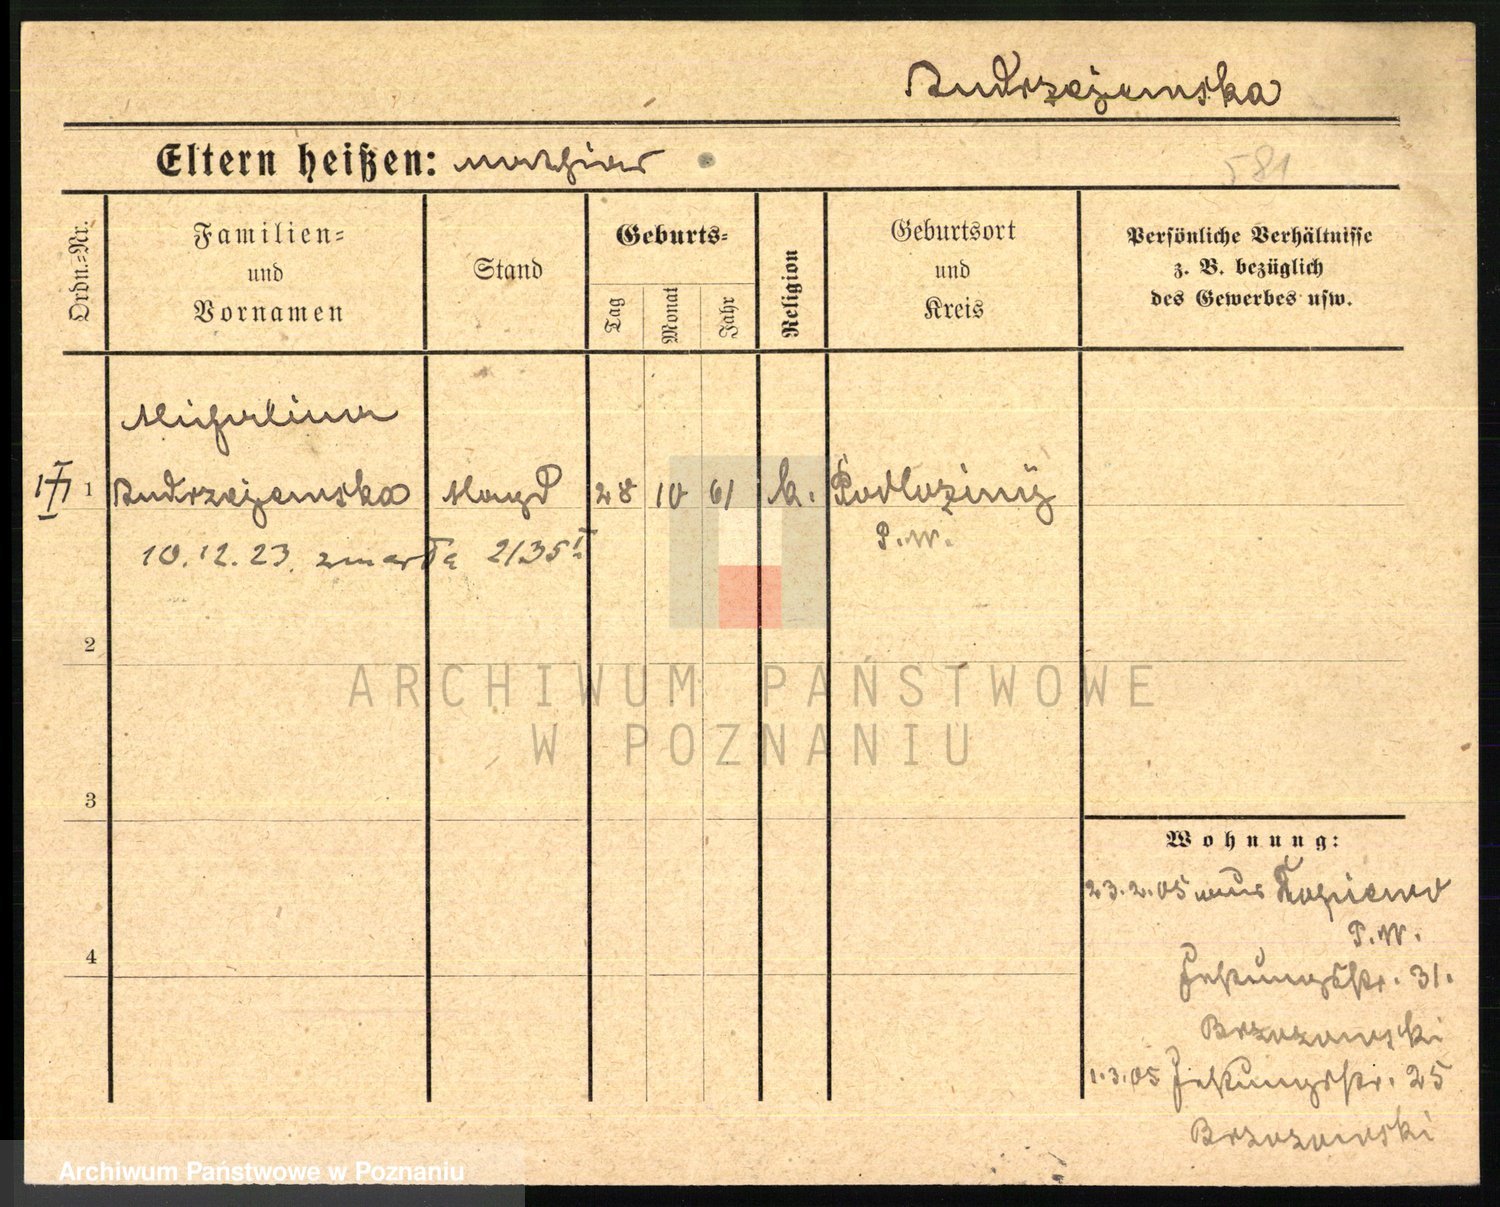 Andrzejewska
Eltern heißen: Mathias
581
Ordn.-Nr.
Familien- und Vornamen
Stand
Geburts-
Tag
Monat
Jahr
Religion
Geburtsort und Kreis
Persönliche Verhältnisse z. B. bezüglich des Gewerbes usw.
Michalina
1 Andrzejewska Magd 28 10 61 k.
P. W.
10.12.23. zmarła 2135
2
3
4
Wohnung:
23.2.05 aus
P. W.
Festungsstr. 31.
Brzozowski
1.3.05 Festungsstr. 25
Brzozowski
ARCHIWUM PAŃSTWOWE
W POZNANIU
Archiwum Państwowe w Poznaniu